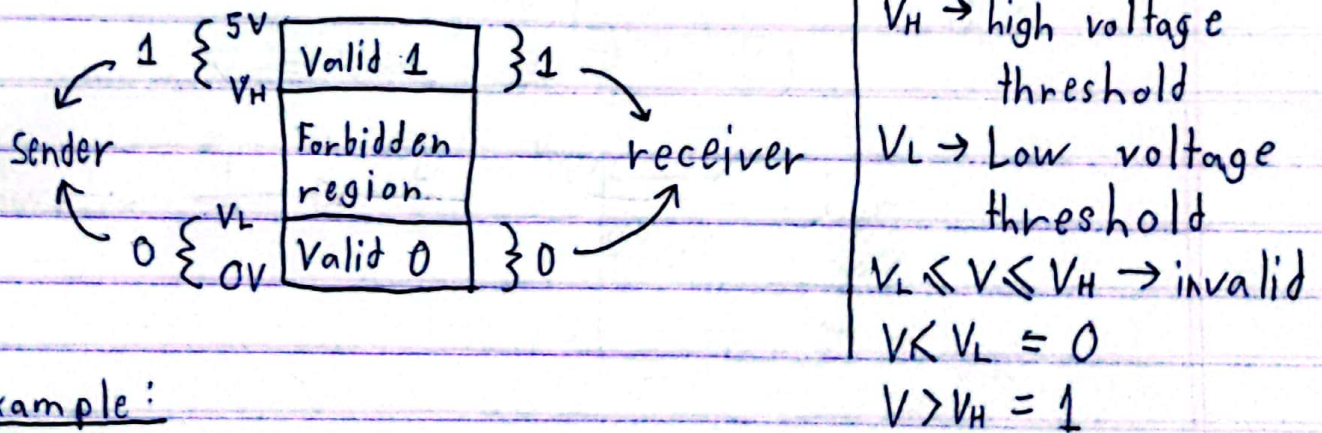 1 { 5V Valid 1 } 1
VH
Sender Forbidden receiver
region
VL
0 { 0V Valid 0 } 0
VH → high voltage
threshold
VL → Low voltage
threshold
VL ⩽ V ⩽ VH → invalid
V < VL = 0
V > VH = 1
ample: